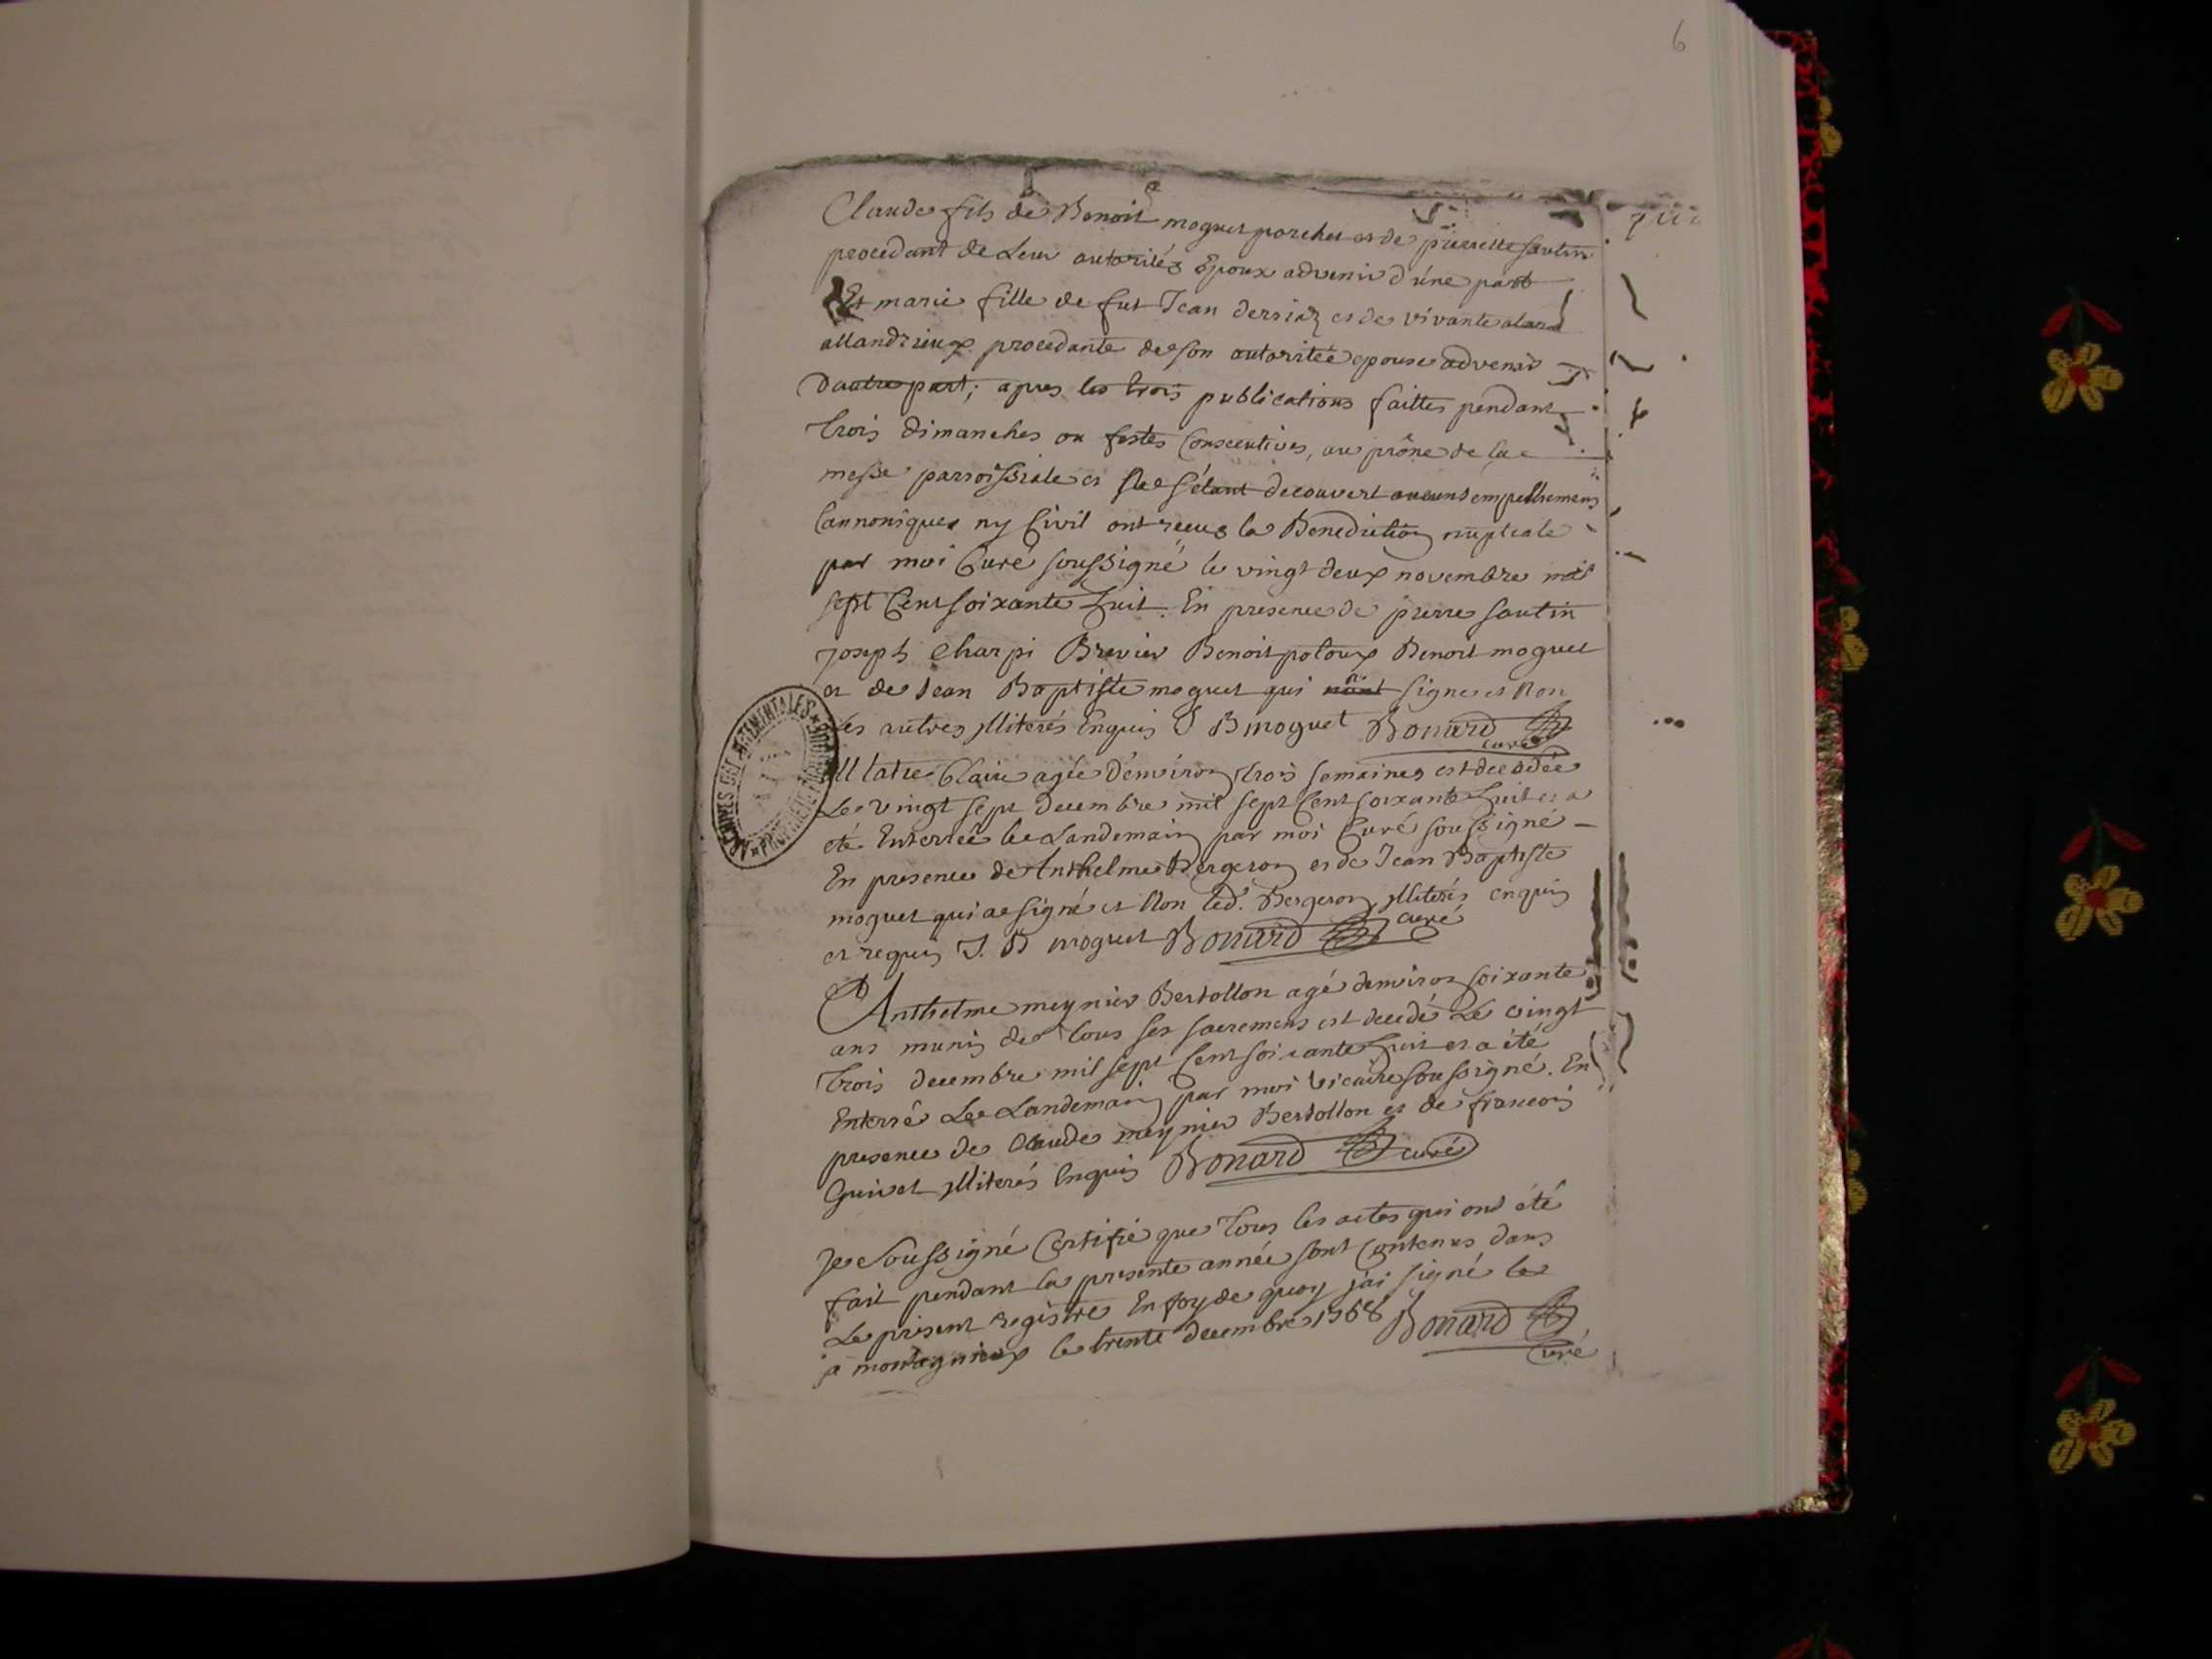 6
Claude fils de Benoit moguet porcher et de pierrette sautin
procedant de Leur autorités Epoux advenir d'une part
Et marie fille de fut Jean derriaz et de vivante
allandrieux procedante de son autoritée epouse advenir
Dautre part; apres les trois publications faittes pendant
trois dimanches ou festes Consecutives, au prône de la
messe parroissiale et ne s'étant decouvert aucuns empêchemens
Cannoniques ny Civil ont recus la Benediction nuptiale
par moi Curé soussigné le vingt deux novembre mil
sept Cent soixante huit. En presence de pierre sautin
Joseph Charpi Brevier Benoit poloux Benoit moguet
et de Jean Baptiste moguet qui signe et Non
Les autres illiterés Enquis J B moguet Bonard
curé
Claire agée d'environ trois semaines est decedée
Le vingt sept decembre mil sept Cent soixante huit et a
eté Enterrée le Landemain par moi Curé soussigné
En presence de Anthelme Bergeron et de Jean Baptiste
moguet qui a signé et Non led. Bergeron illiterés enquis
et requis J. B moguet Bonard curé
Anthelme meynier Bertollon agé d'environ soixante
ans munis de tous ses sacremens est decedé Le vingt
trois decembre mil sept Cent soixante huit et a été
Enterré Le Landemain par moi vicaire soussigné. En
presence de Claude meynier Bertollon et de francois
Guivet illiterés Enquis Bonard curé
Je Soussigné Certifie que tous les actes qui ont été
fait pendant la presente année sont Contenus dans
Le present registre En foy de quoy j'ai signé le
a montagnieux le trente decembre 1768 Bonard
Curé
ARCHIVES DÉPARTEMENTALES
PROPRIÉTÉ PUBLIQUE